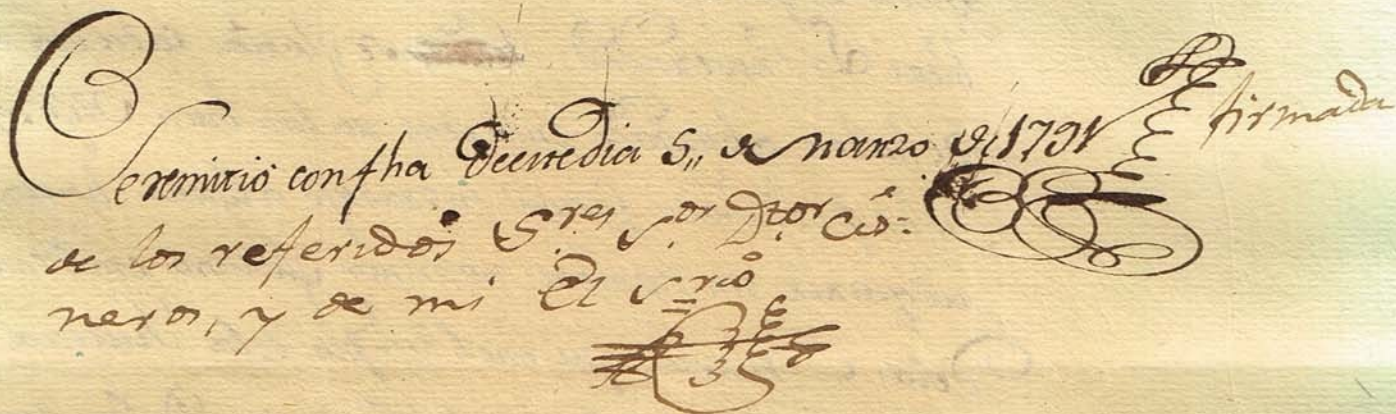 Se remitio con fha de este dia 5,, de marzo de 1791 firmada
de los referidos S.res S.or Dtor Cis-
neros, y de mi El S.rio